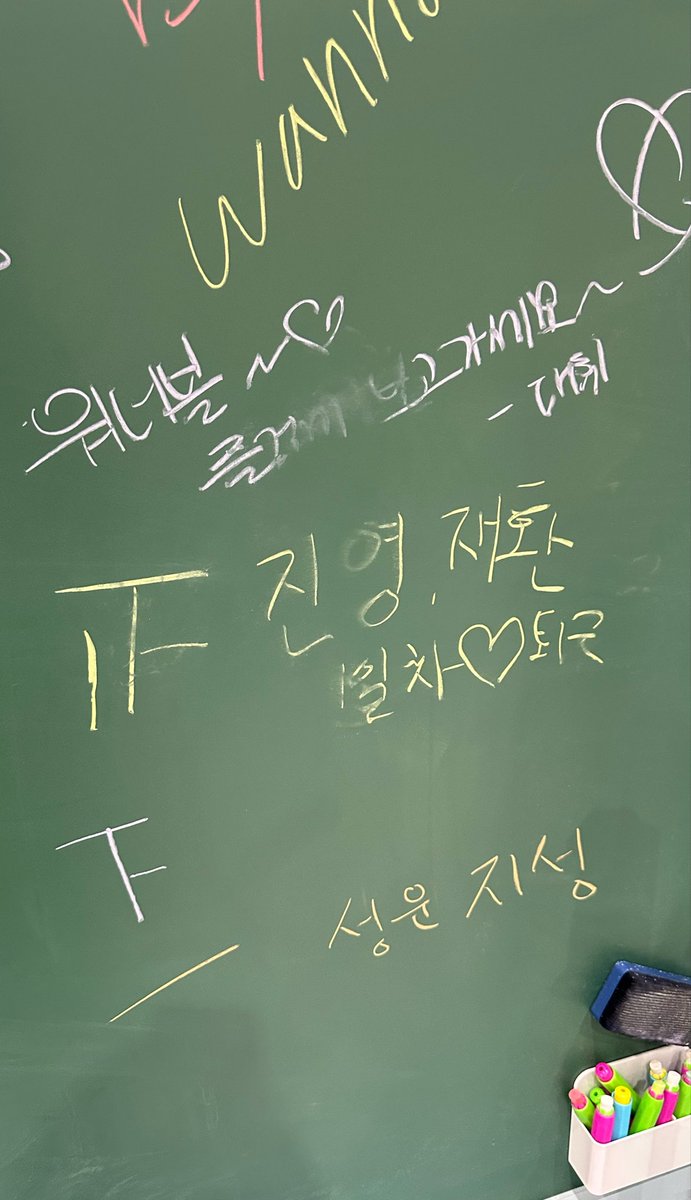 wann
워너블 ~♡
즐겁게 보고가세요~
- 대휘
진영, 재환
1일차♡퇴근
성운 지성